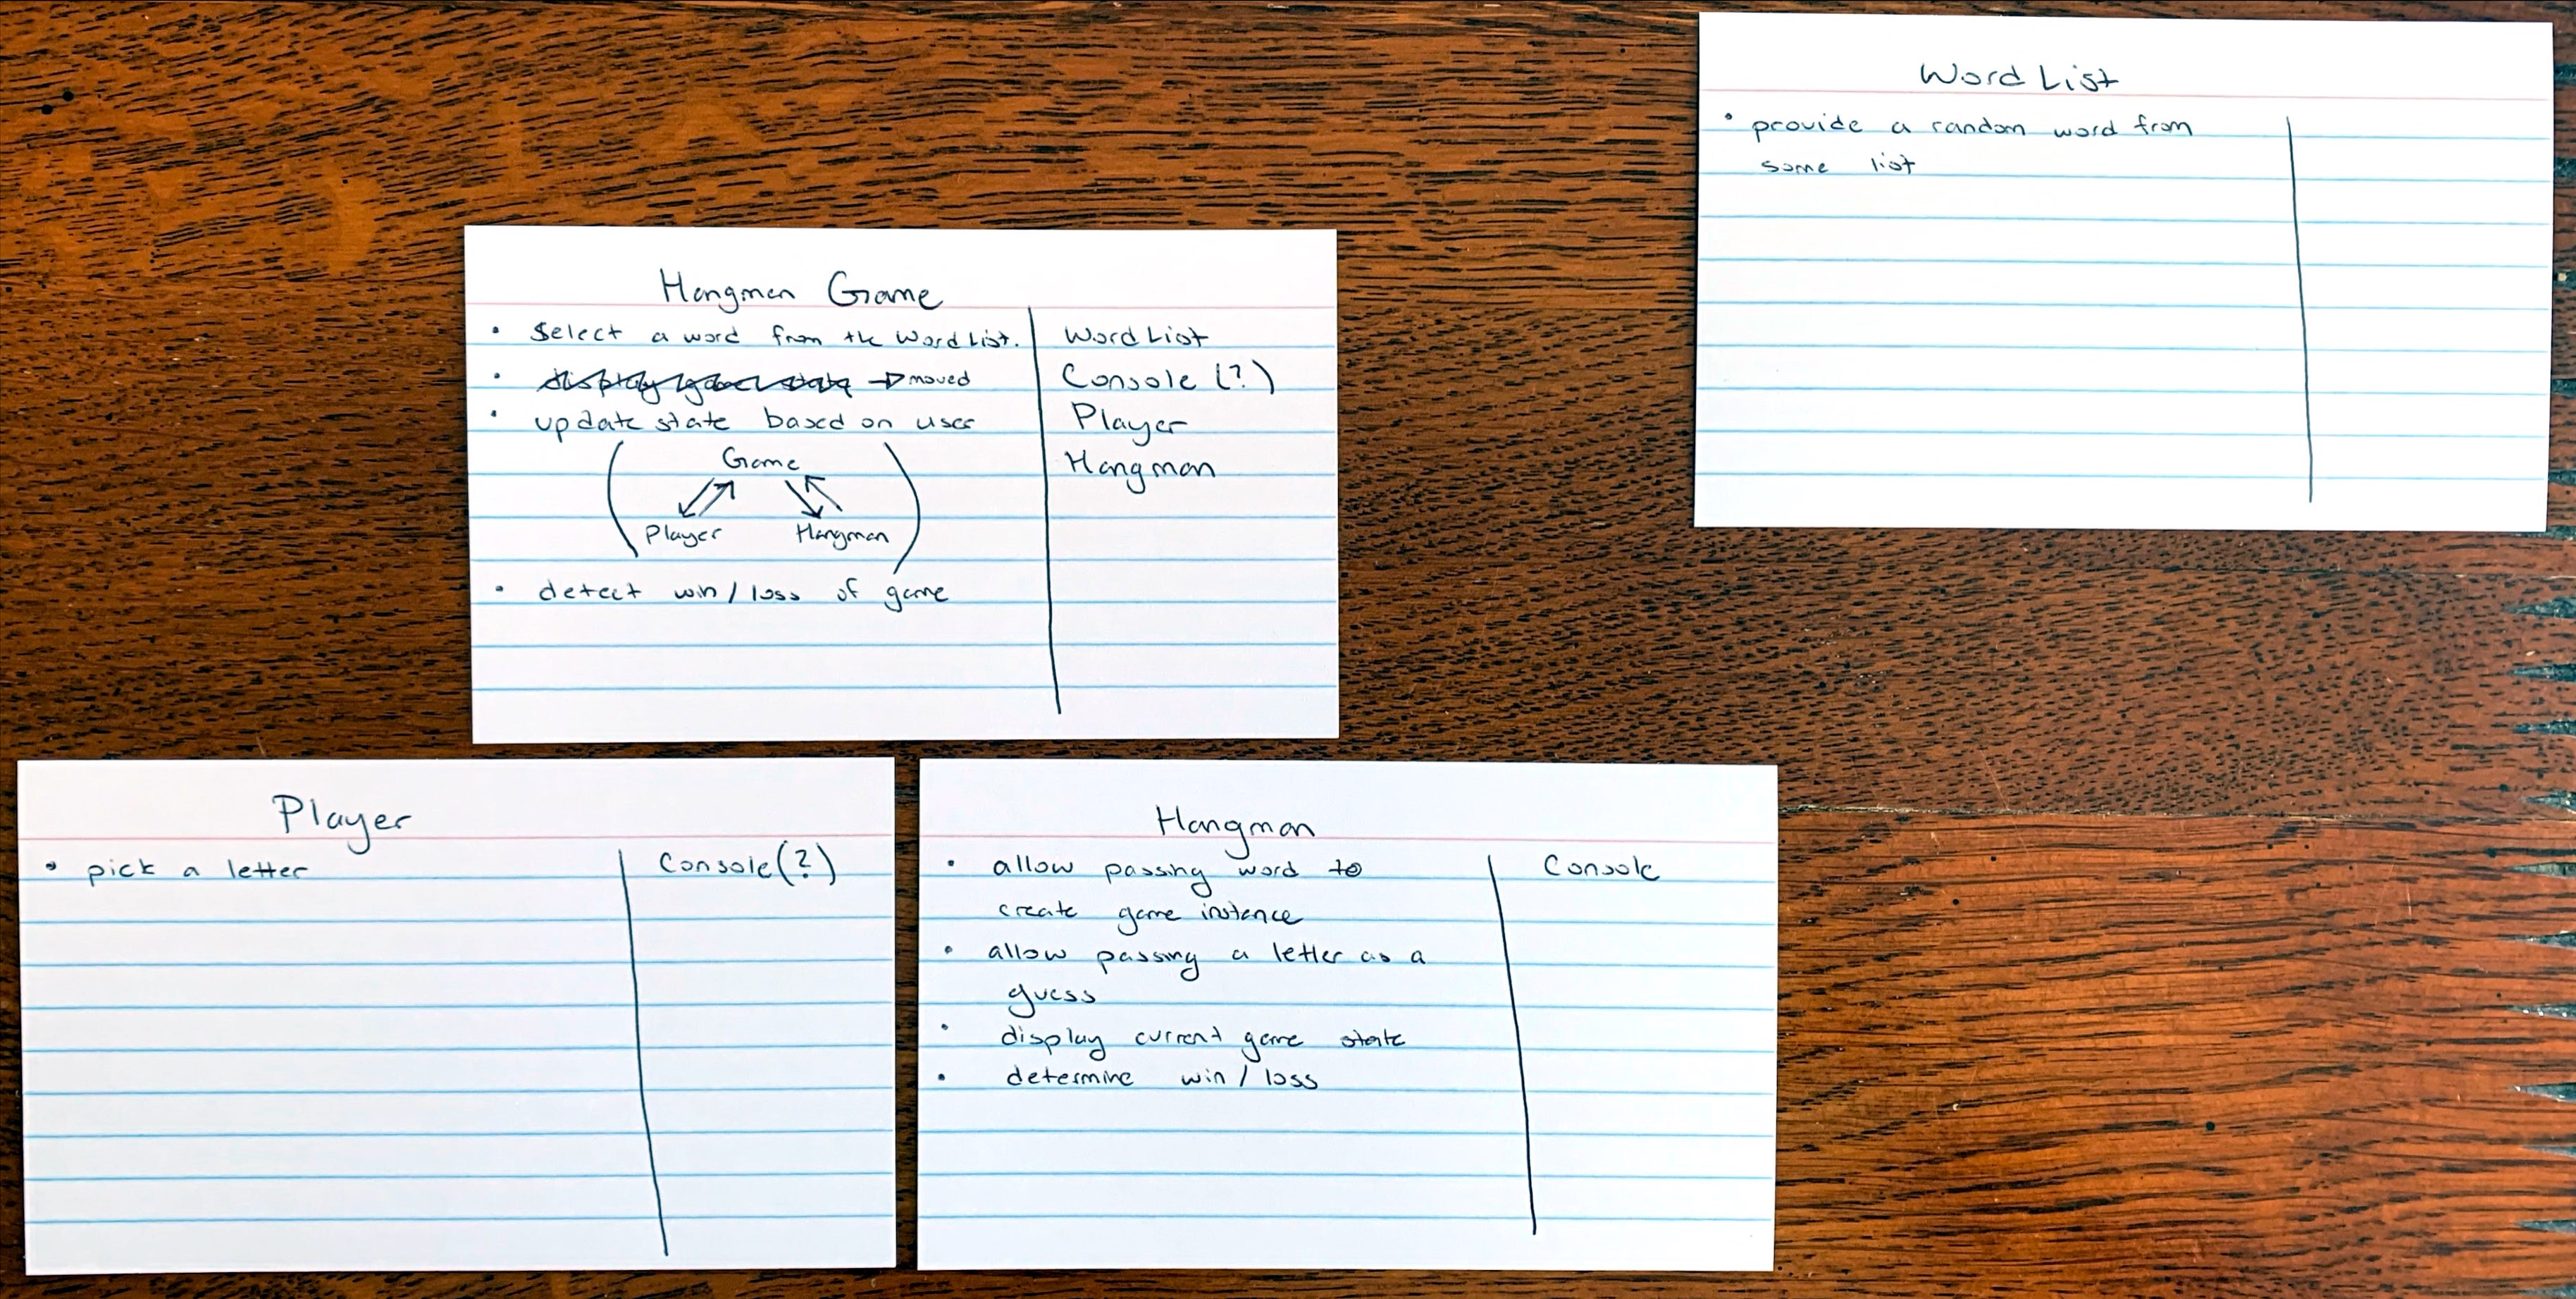 Word List
• provide a random word from
some list
Hangman Game
• Select a word from the Word List.
• display game state → moved
• update state based on user
(Game
Player Hangman)
• detect win / loss of game
Word List
Console (?)
Player
Hangman
Player
• pick a letter
Console (?)
Hangman
• allow passing word to
create game instance
• allow passing a letter as a
guess
• display current game state
• determine win / loss
Console